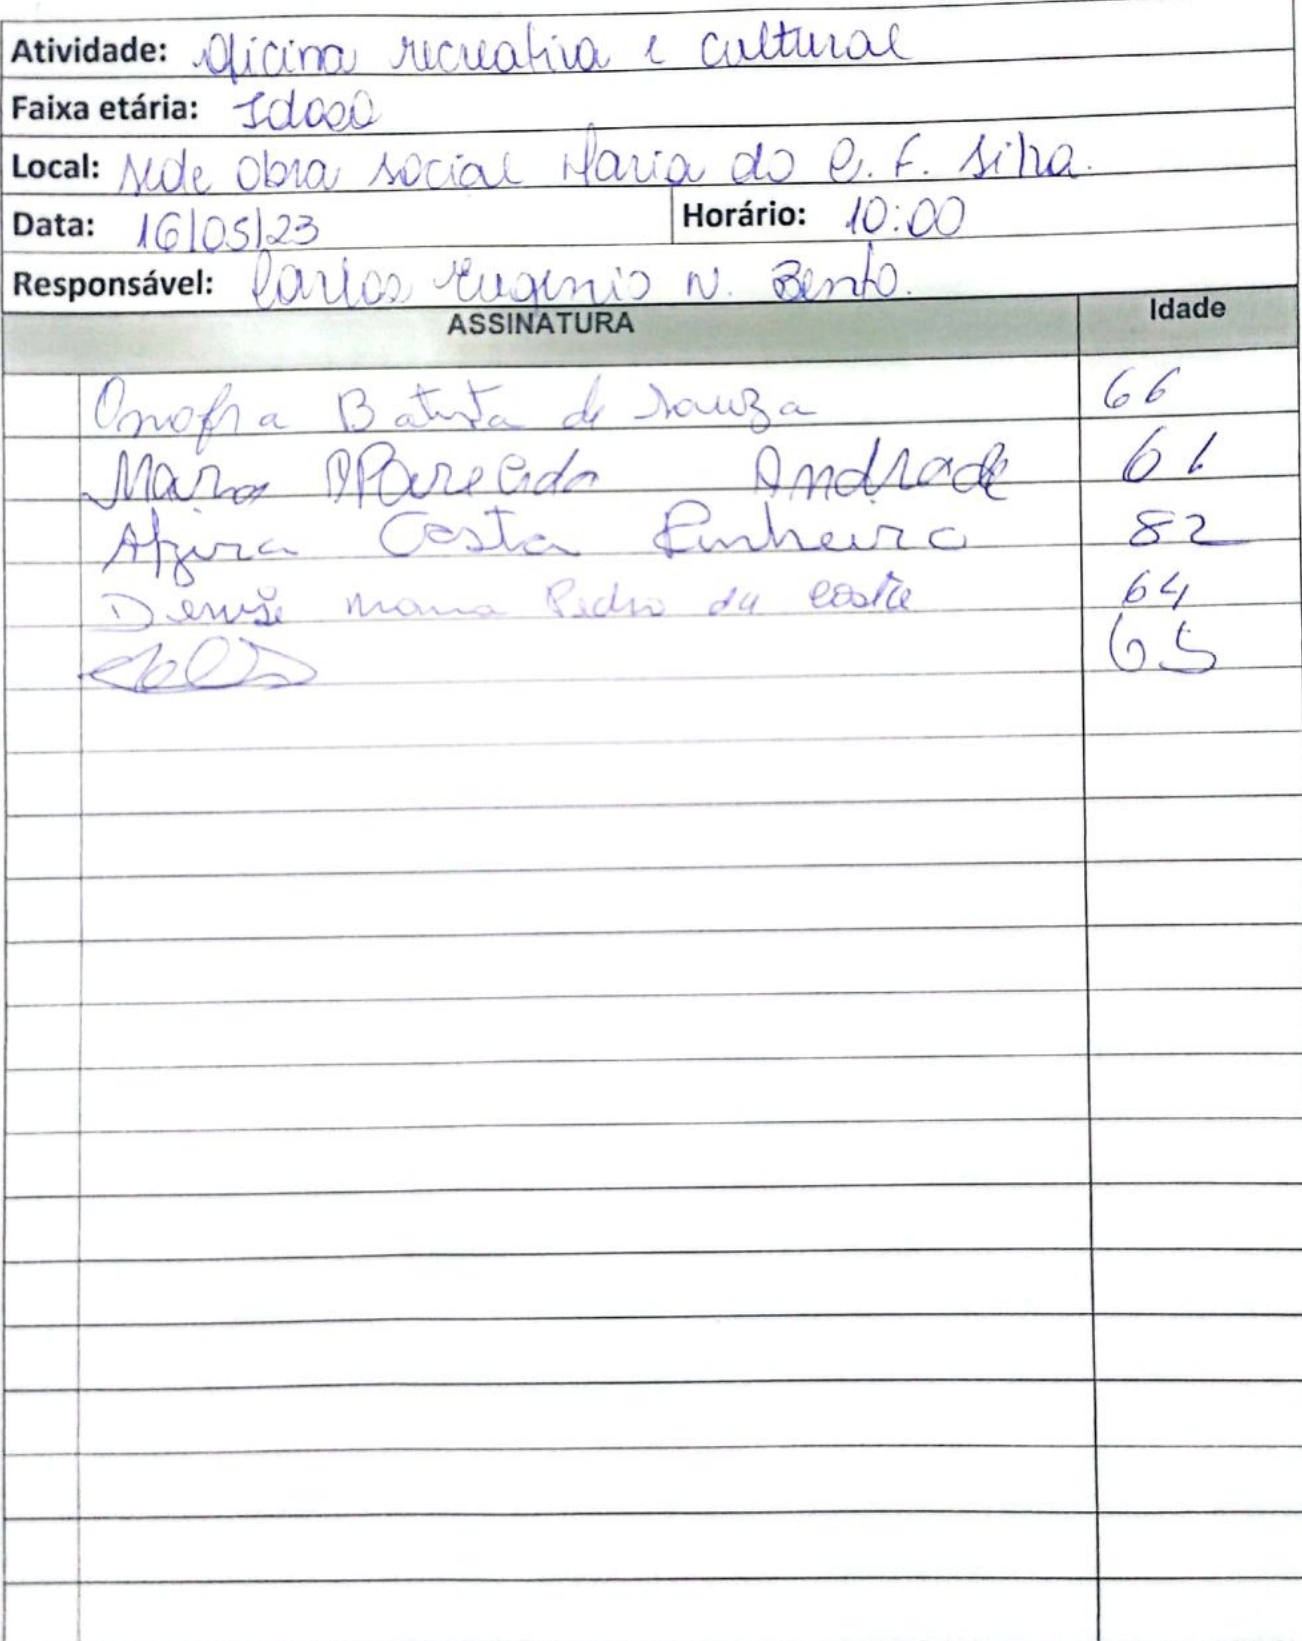 Atividade: Oficina recreativa e cultural
Faixa etária: Idoso
Local: sede obra social Maria do C. F. Silva.
Data: 16/05/23 Horário: 10:00
Responsável: Carlos Eugenio N. Bento.
ASSINATURA Idade
Onofra Batista de Souza 66
Maria Aparecida Andrade 61
Alzira Costa Pinheiro 82
Denise Maria Pedro da Costa 64
65